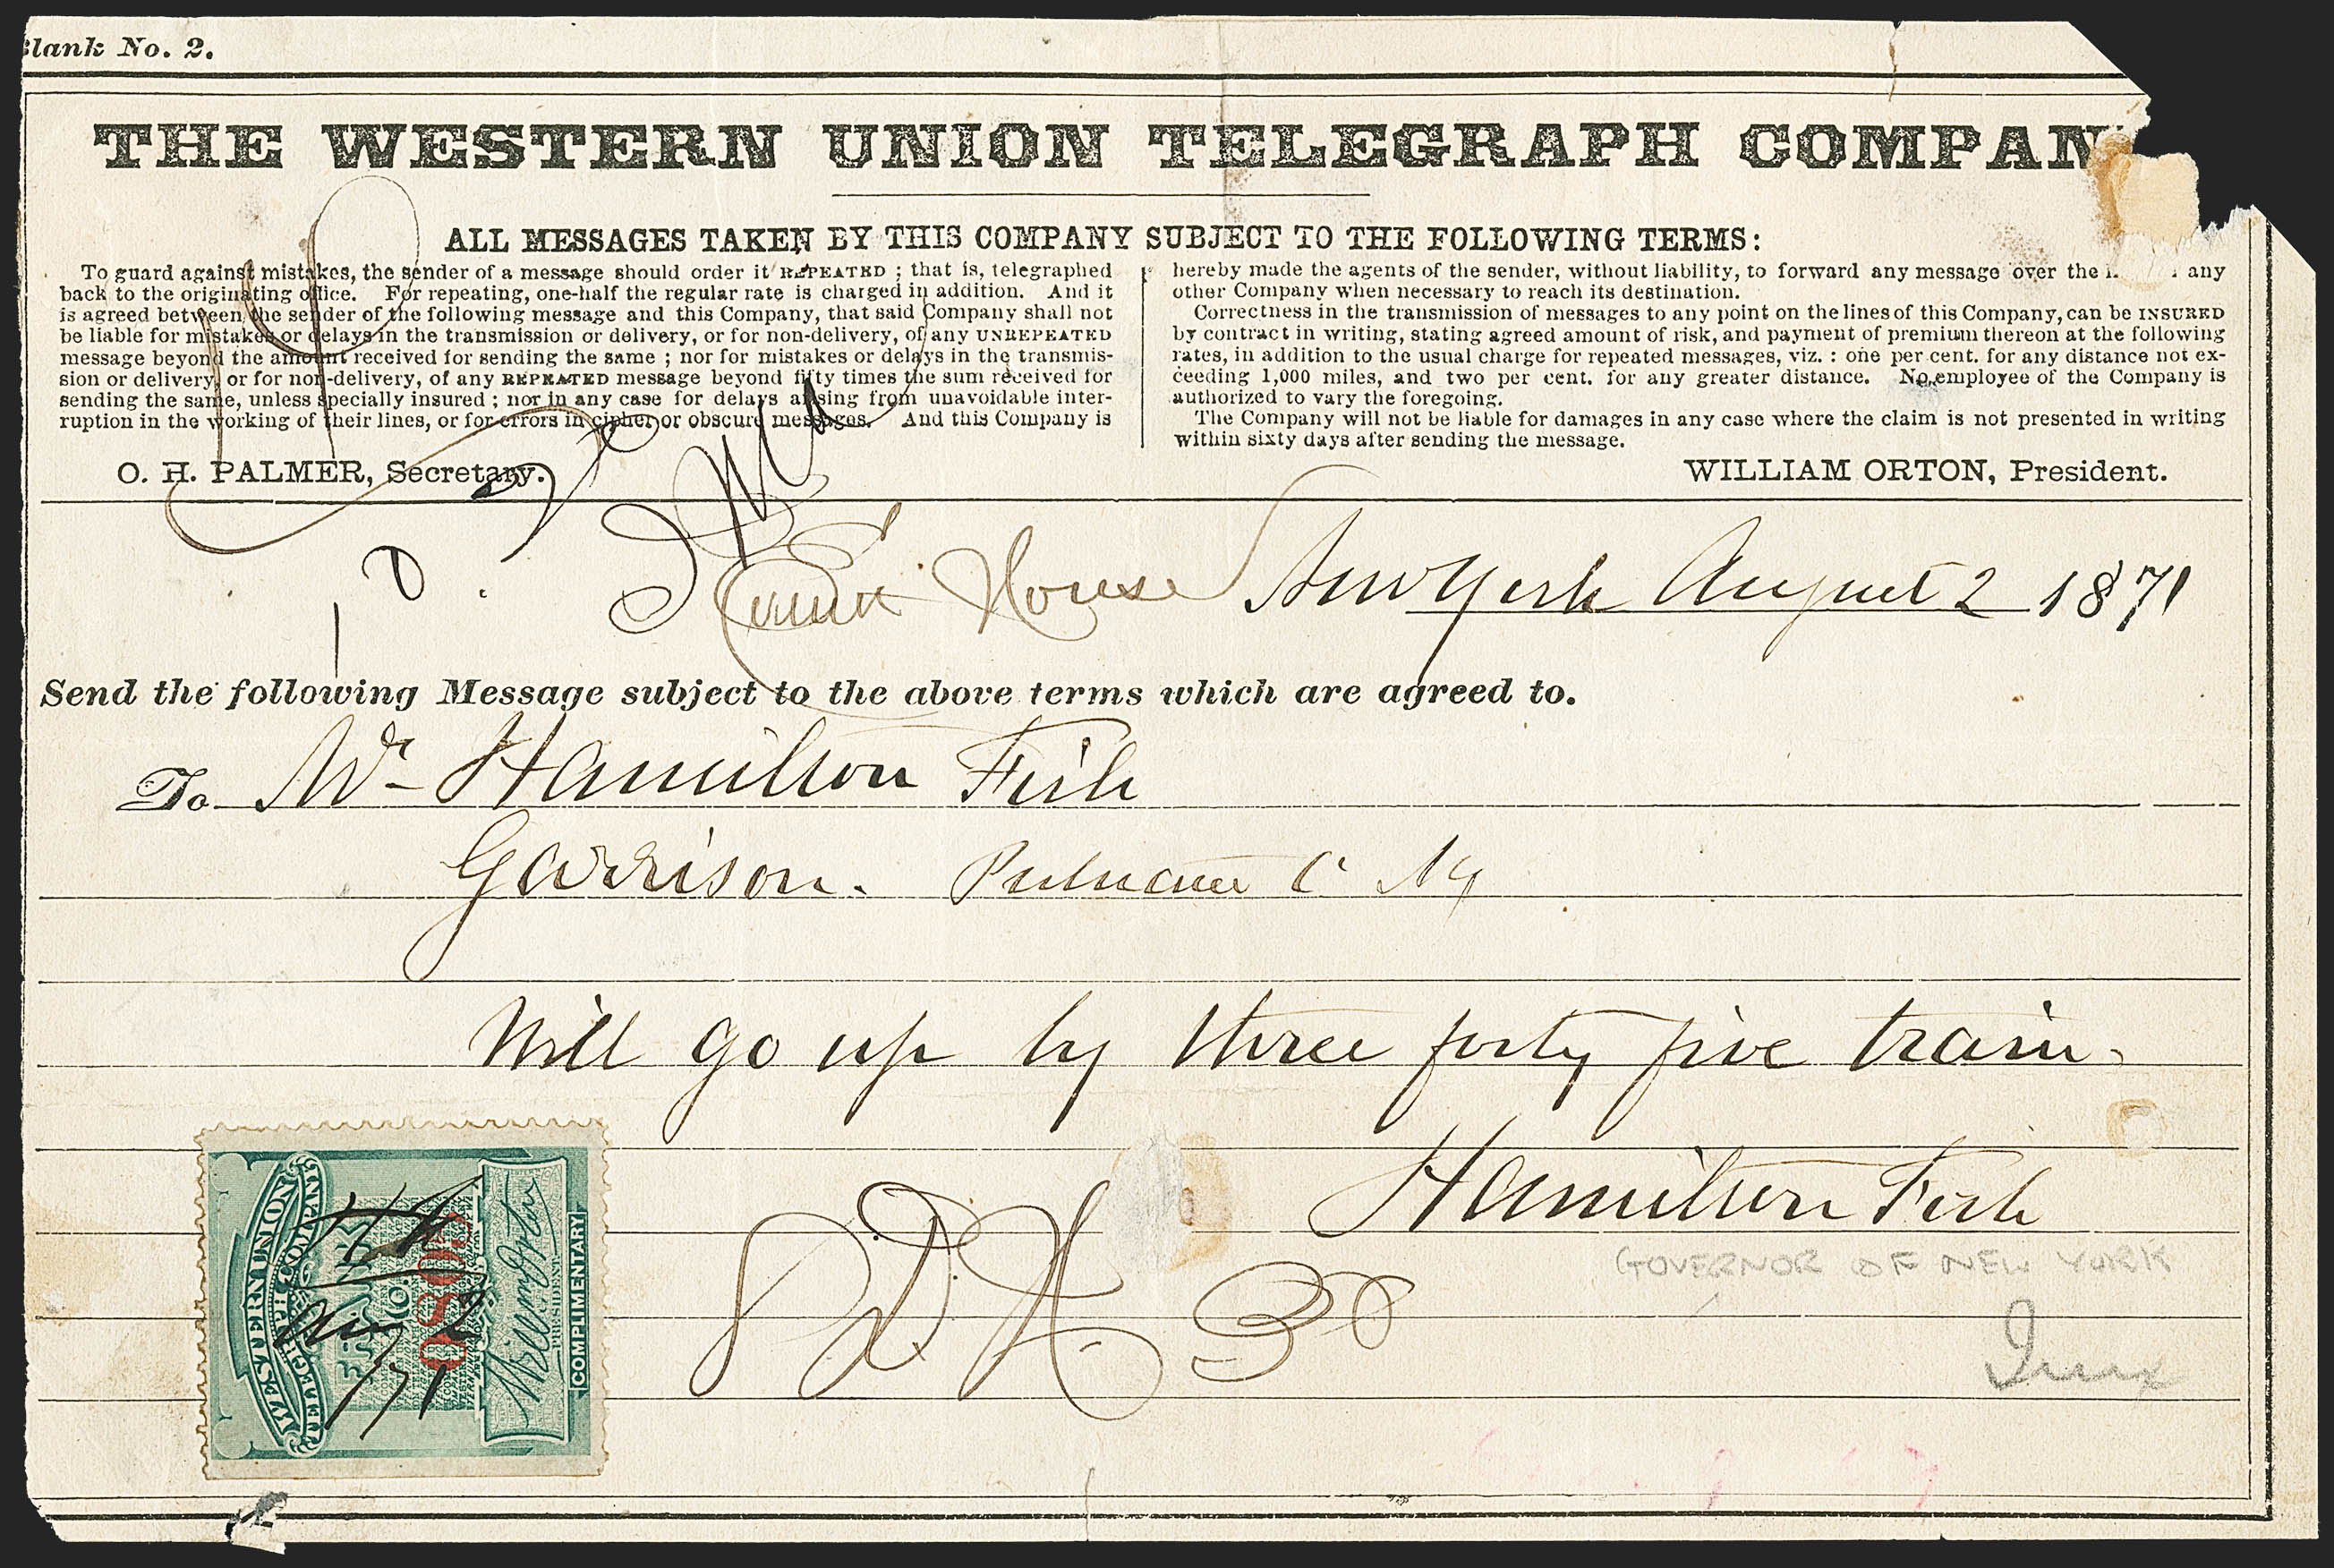 Blank No. 2.
THE WESTERN UNION TELEGRAPH COMPAN
ALL MESSAGES TAKEN BY THIS COMPANY SUBJECT TO THE FOLLOWING TERMS:
To guard against mistakes, the sender of a message should order it REPEATED ; that is, telegraphed
back to the originating office. For repeating, one-half the regular rate is charged in addition. And it
is agreed between the sender of the following message and this Company, that said Company shall not
be liable for mistakes or delays in the transmission or delivery, or for non-delivery, of any UNREPEATED
message beyond the amount received for sending the same ; nor for mistakes or delays in the transmis-
sion or delivery, or for non-delivery, of any REPEATED message beyond fifty times the sum received for
sending the same, unless specially insured ; nor in any case for delays arising from unavoidable inter-
ruption in the working of their lines, or for errors in cipher or obscure messages. And this Company is
hereby made the agents of the sender, without liability, to forward any message over the any
other Company when necessary to reach its destination.
Correctness in the transmission of messages to any point on the lines of this Company, can be INSURED
by contract in writing, stating agreed amount of risk, and payment of premium thereon at the following
rates, in addition to the usual charge for repeated messages, viz. : one per cent. for any distance not ex-
ceeding 1,000 miles, and two per cent. for any greater distance. No employee of the Company is
authorized to vary the foregoing.
The Company will not be liable for damages in any case where the claim is not presented in writing
within sixty days after sending the message.
O. H. PALMER, Secretary.
WILLIAM ORTON, President.
House New York August 2 1871
Send the following Message subject to the above terms which are agreed to.
To Mr Hamilton Fish
Garrison. Putnam C NY
Will go up by three forty five train.
Hamilton Fish
GOVERNOR OF NEW YORK
WESTERN UNION
TELEGRAPH COMPANY
FRANK
No.
0805
Aug 2
71
William Orton
PRESIDENT
COMPLIMENTARY